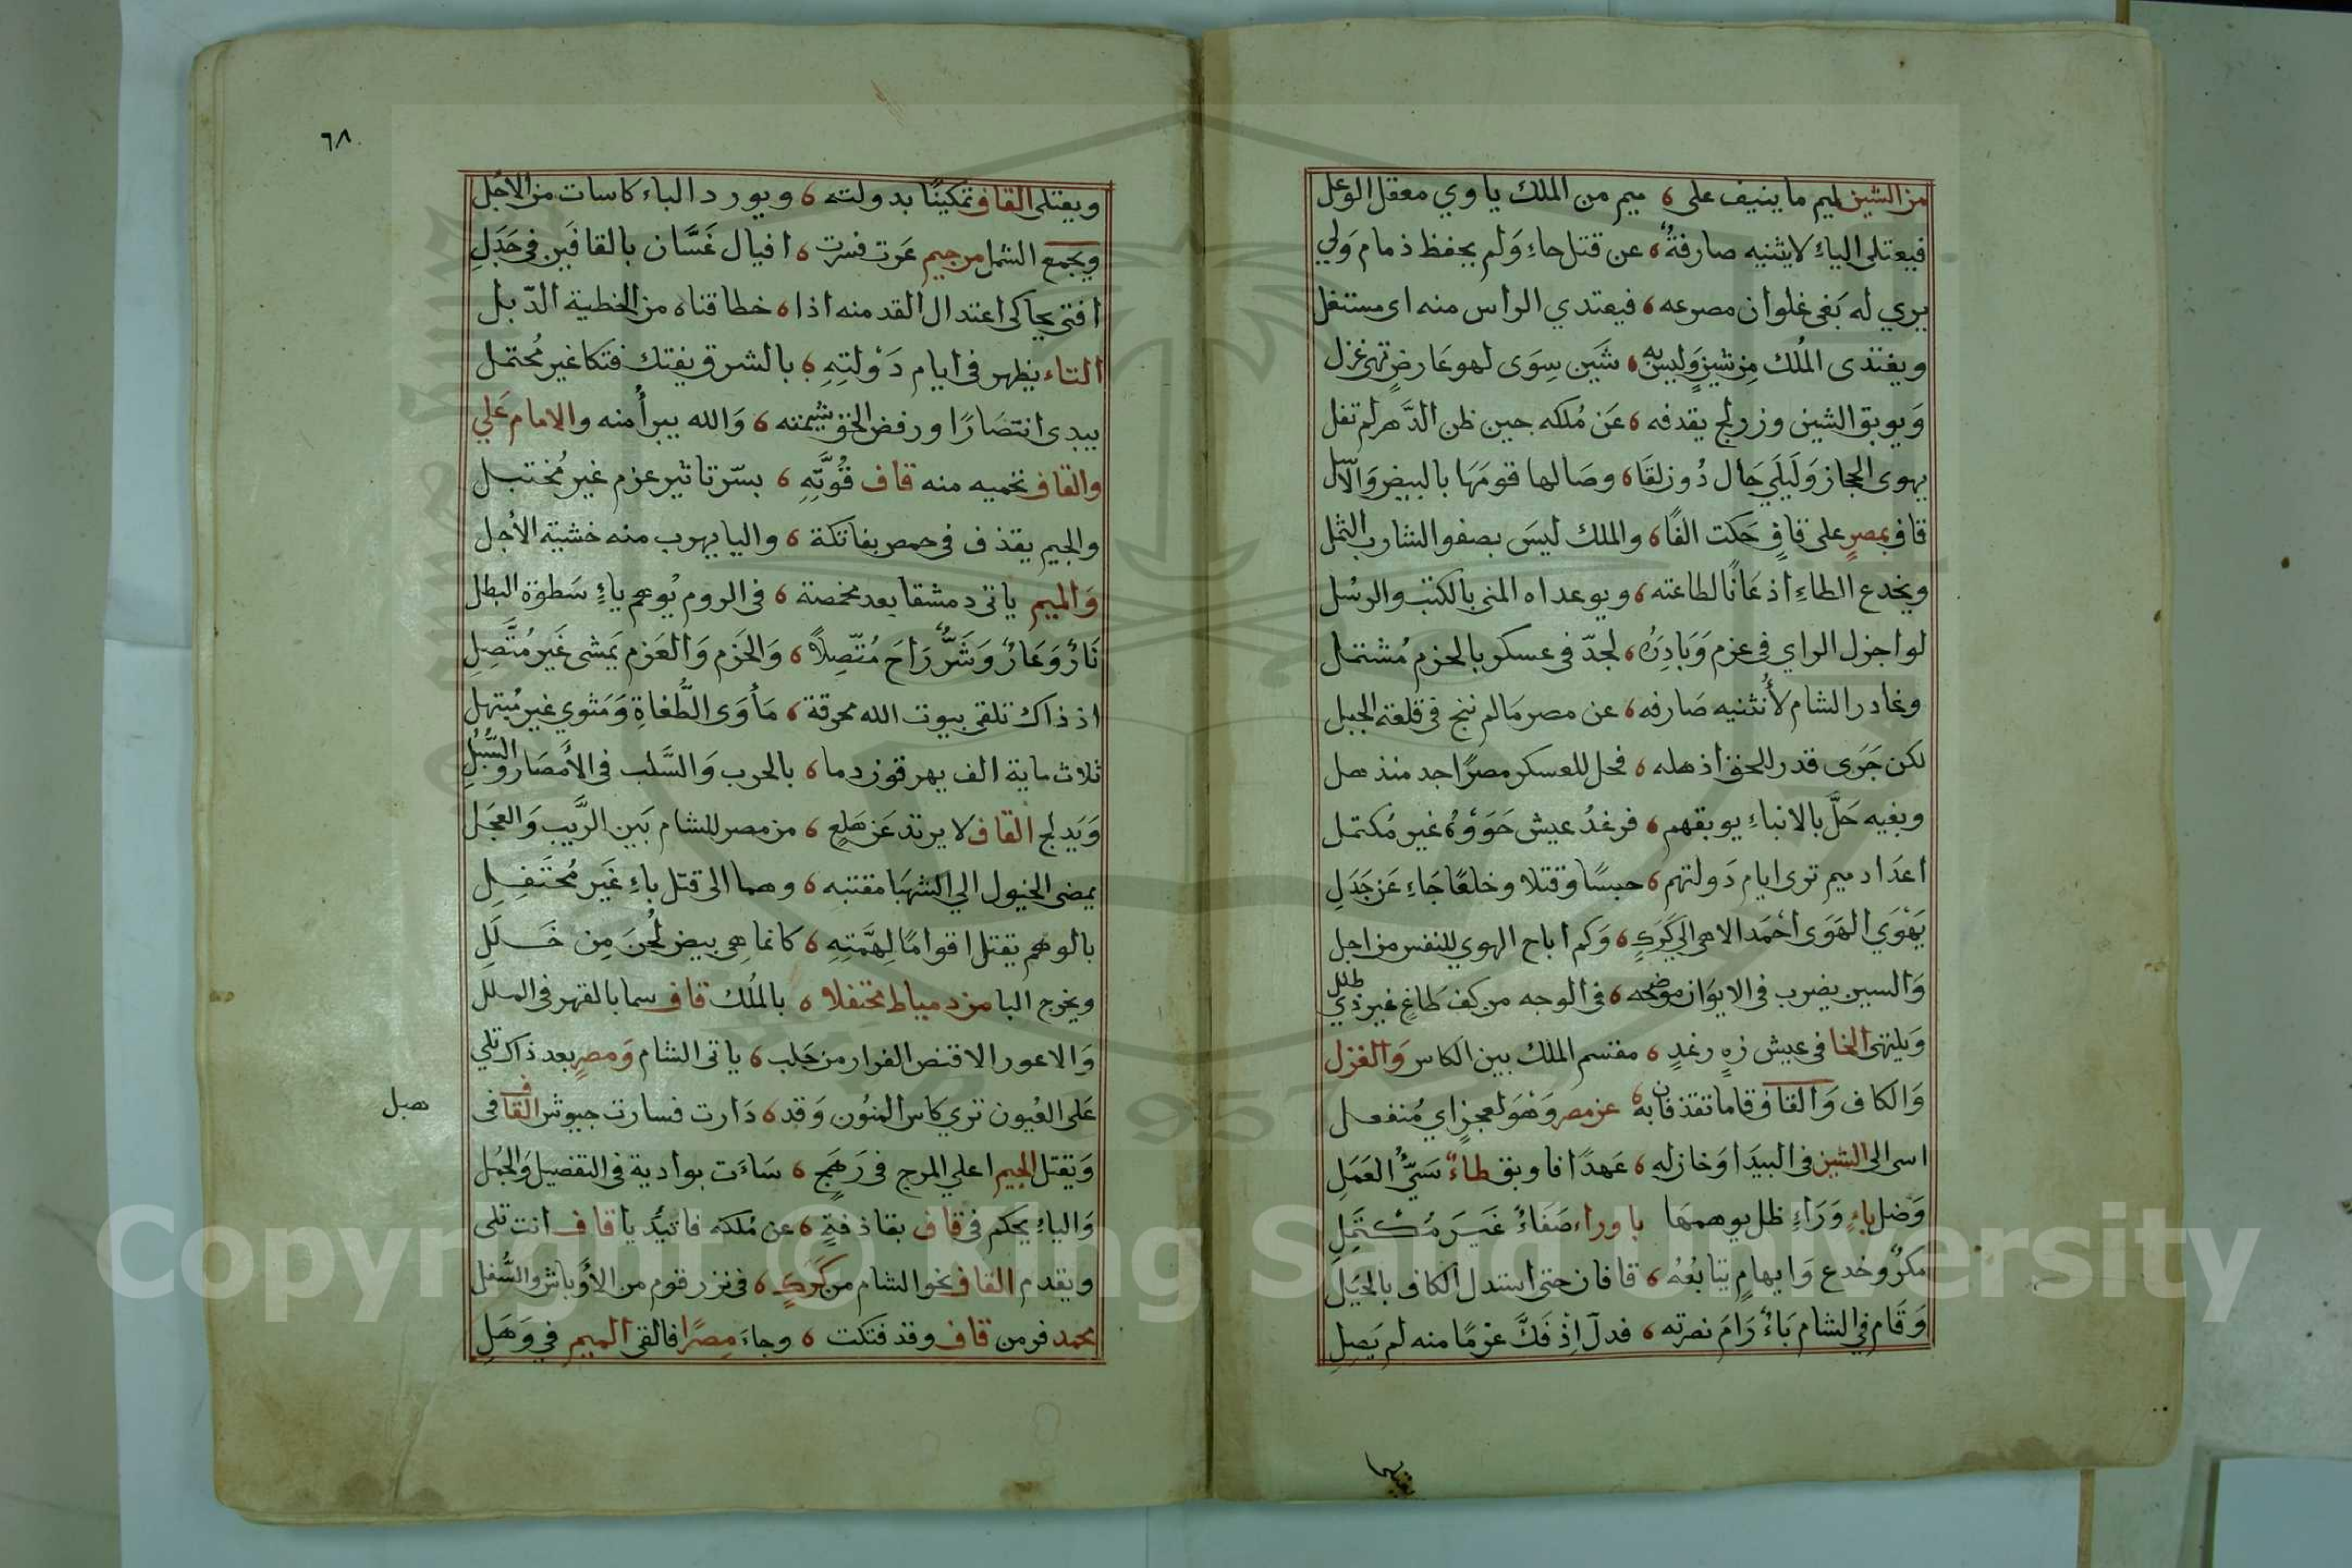 من الشين ميم ما ينيف على ٥ ميم من الملك ياوي معقل الوعل
فيعتلى الياء لا يثنيه صارفة ٥ عن قتل حاء ولم يحفظ ذمام ولي
يري له بغى غلوان مصرعه ٥ فيعتدي الراس منه اى مستغل
ويغتدى الملك من شين وليس به ٥ شين سوى لهو عارض تهى غزل
ويوبق الشين وزر لج يقدفه ٥ عن ملكه حين ظن الدهر لم تفل
يهوى الحجاز وليلي حال دون لقا ٥ وصالها قومها بالبيض والاسل
قاف بمصر على قاف حكت الفا ٥ والملك ليس بصفو الشارب الثمل
ويخدع الطاء اذعانا لطاعته ٥ ويوعداه المنى بالكتب والرسل
لو اجزل الراي في عزم وبادره ٥ لجد في عسكر بالحزم مشتمل
وغادر الشام لا تثنيه صارفه ٥ عن مصر مالم ننج في قلعة الجبل
لكن جرى قدر للحق اذهله ٥ فحل للعسكر مصرا جد منذهل
وبغيه حل بالانباء يوبقهم ٥ فرغد عيش حووه غير مكتمل
اعداد ميم ترى ايام دولتهم ٥ حبسا وقتلا وخلعا جاء عن جدل
يهوي الهوى احمد الاهى الي كرك ٥ وكم اباح الهوي للنفس من اجل
والسين يضرب في الايوان موضحه ٥ في الوجه من كف طاغ غير ذي طلل
ويلتهى الخا في عيش زه رغد ٥ مقتسم الملك بين الكاس والغزل
والكاف والقاف قاما تقذفان به ٥ عن مصر وهو لعجز اي منفعل
اسى الى الشين في البيدا وخازله ٥ عهدا فاوبق طاء سيّ العمل
وضل باء وراء ظل يوهمها باوراء صفاء غير مكتمل
مكر وخدع وايهام يتابعه ٥ قافان حتى استدل الكاف بالحيل
وقام في الشام باء رام نصرته ٥ فدل اذ فك عزما منه لم يصل
٦٨
ويعتلى القاف تمكينا بدولته ٥ ويورد الباء كاسات من الاجل
ويجمع الشمل من جيم عرت فسرت ٥ اقيال غسان بالقافين في جدل
افتى يحاكى اعتدال القد منه اذا ٥ خطا قناه من الخطية الذبل
التاء يظهر في ايام دولته ٥ بالشرق يفتك فتكا غير محتمل
يبدى انتصارا ورفض الحق شيمته ٥ والله يبرأ منه والامام علي
والقاف تحميه منه قاف قوته ٥ بسر تاثير عزم غير مختبل
والجيم يقذف في حمص بفاتكة ٥ واليا يهرب منه خشية الاجل
والميم ياتى دمشقا بعد مخمصة ٥ في الروم يوهم ياء سطوة البطل
نار وعار وشر راح متصلا ٥ والحزم والعزم يمشى غير متصل
اذ ذاك تلقى بيوت الله محرقة ٥ مأوى الطغاة ومثوي غير مبتهل
ثلاث ماية الف يهرقون دما ٥ بالحرب والسلب في الأمصار والسبل
ويدلج القاف لا يرتد عن هلع ٥ من مصر للشام بين الريب والعجل
يمضى الخيول الي الشهبا مقتبه ٥ وهما الى قتل باء غير محتفل
بالوهم يقتل اقواما لهمته ٥ كانما هي بيض لحن من خلل
ويخرج البا من دمياط محتفلا ٥ بالملك قاف سما بالقهر في الملل
والاعور الاقنص الفرار من حلب ٥ ياتى الشام ومصر بعد ذاك تلي
على العيون تري كاس المنون وقد ٥ دارت فسارت جيوش القاف في
هبل
وتقتل الجيم اعلي المرج في رهج ٥ ساءت بوادية في التفصيل والجمل
والياء يحكم في قاف بقاذفة ٥ عن ملكه فاتيد يا قاف انت تلى
ويقدم القاف نحو الشام من كرك ٥ في نزر قوم من الأوباش والسفل
محمد فر من قاف وقد فتكت ٥ وجاء مصرا فالقى الميم في وهل